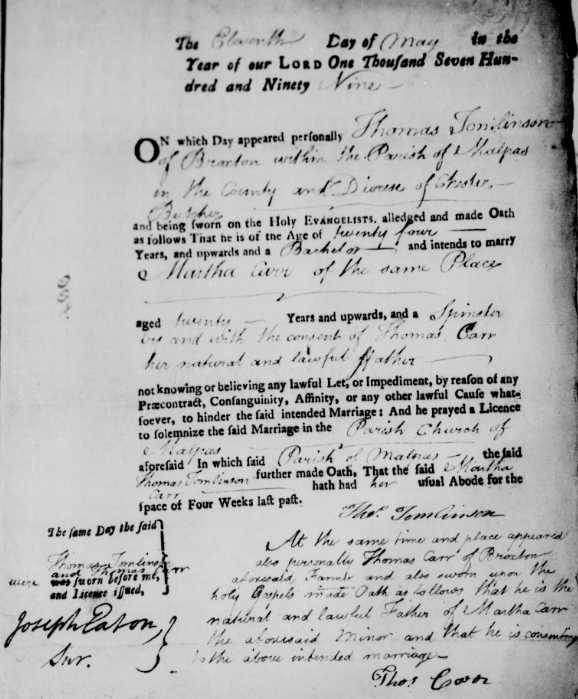 The Eleventh Day of May in the
Year of our LORD One Thousand Seven Hun-
dred and Ninety Nine
ON which Day appeared personally Thomas Tomlinson
of Broxton within the Parish of Malpas
in the County and Diocese of Chester
Butcher
and being sworn on the Holy EVANGELISTS, alledged and made Oath
as follows That he is of the Age of twenty four
Years, and upwards and a Bachelor and intends to marry
Martha Carr of the same Place
aged twenty Years and upwards, and a Spinster
by and with the consent of Thomas Carr
her natural and lawful ffather
not knowing or believing any lawful Let, or Impediment, by reason of any
Præcontract, Consanguinity, Affinity, or any other lawful Cause what-
soever, to hinder the said intended Marriage: And he prayed a Licence
to solemnize the said Marriage in the Parish Church of
Malpas
aforesaid In which said Parish of Malpas the said
Thomas Tomlinson further made Oath, That the said Martha
Carr hath had her usual Abode for the
space of Four Weeks last past.
Thos. Tomlinson
The same Day the said
Thomas Tomlinson
and Thomas Carr
were was sworn before me,
and Licence issued,
Joseph Eaton,
Sur.
At the same time and place appeared
also personally Thomas Carr of Broxton
aforesaid Farmer and also sworn upon the
holy Gospels made Oath as follows that he is the
natural and lawful Father of Martha Carr
the aforesaid Minor and that he is consenting
to the above intended marriage
Thos Carr